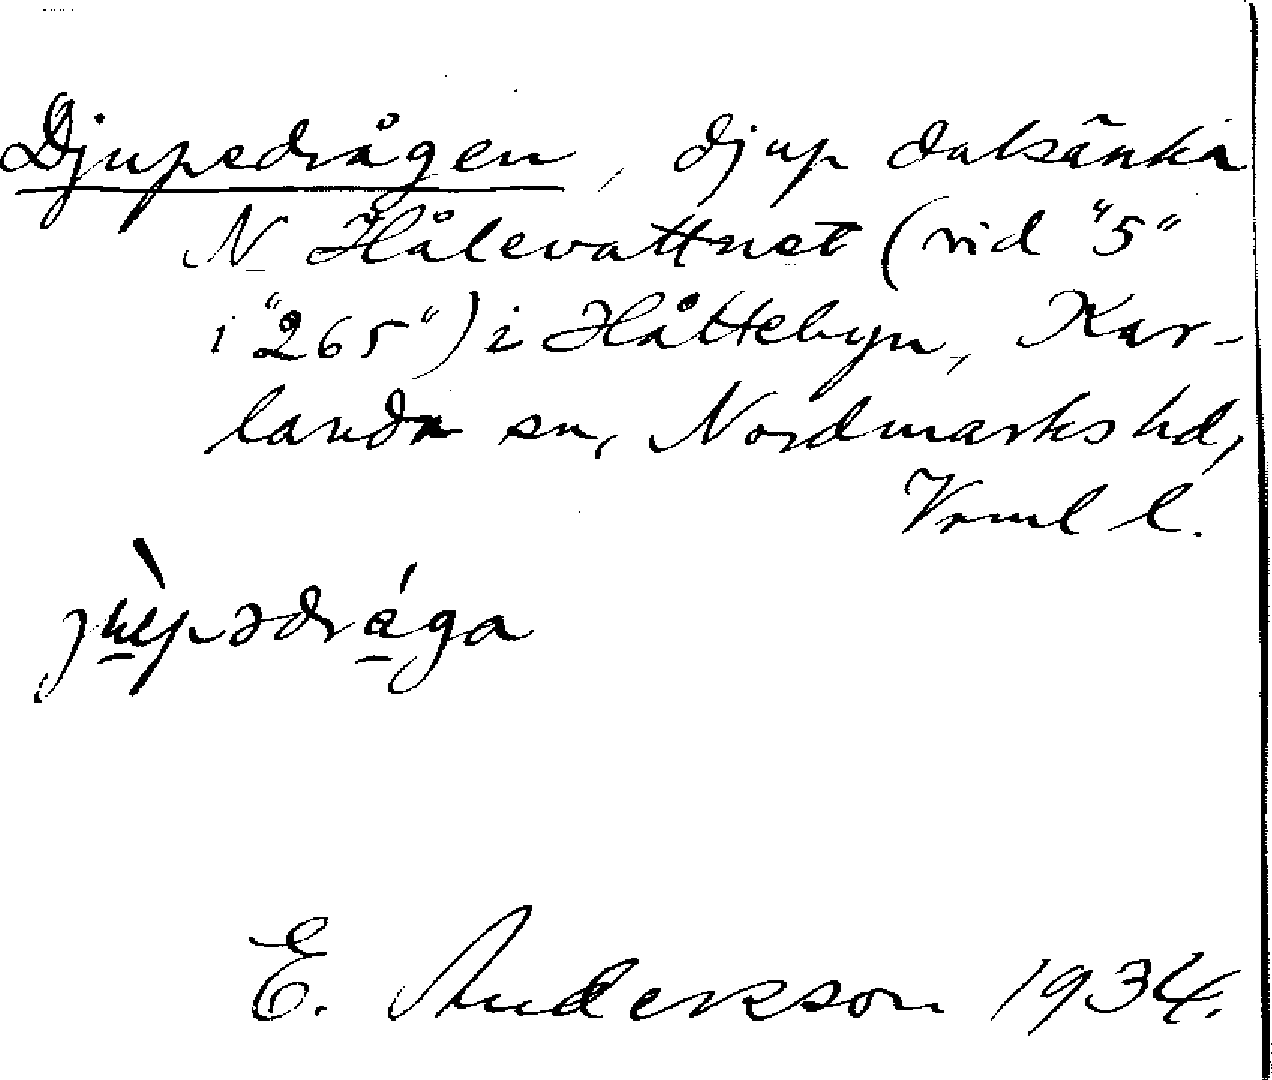 Djupedrågen, djup dalsänka
N Hålevattnet (vid "5"
i "265") i Håttebyn, Kar-
landa sn, Nordmarks hd,
Vrml l.
jùpədråga
E. Andersson 1934.